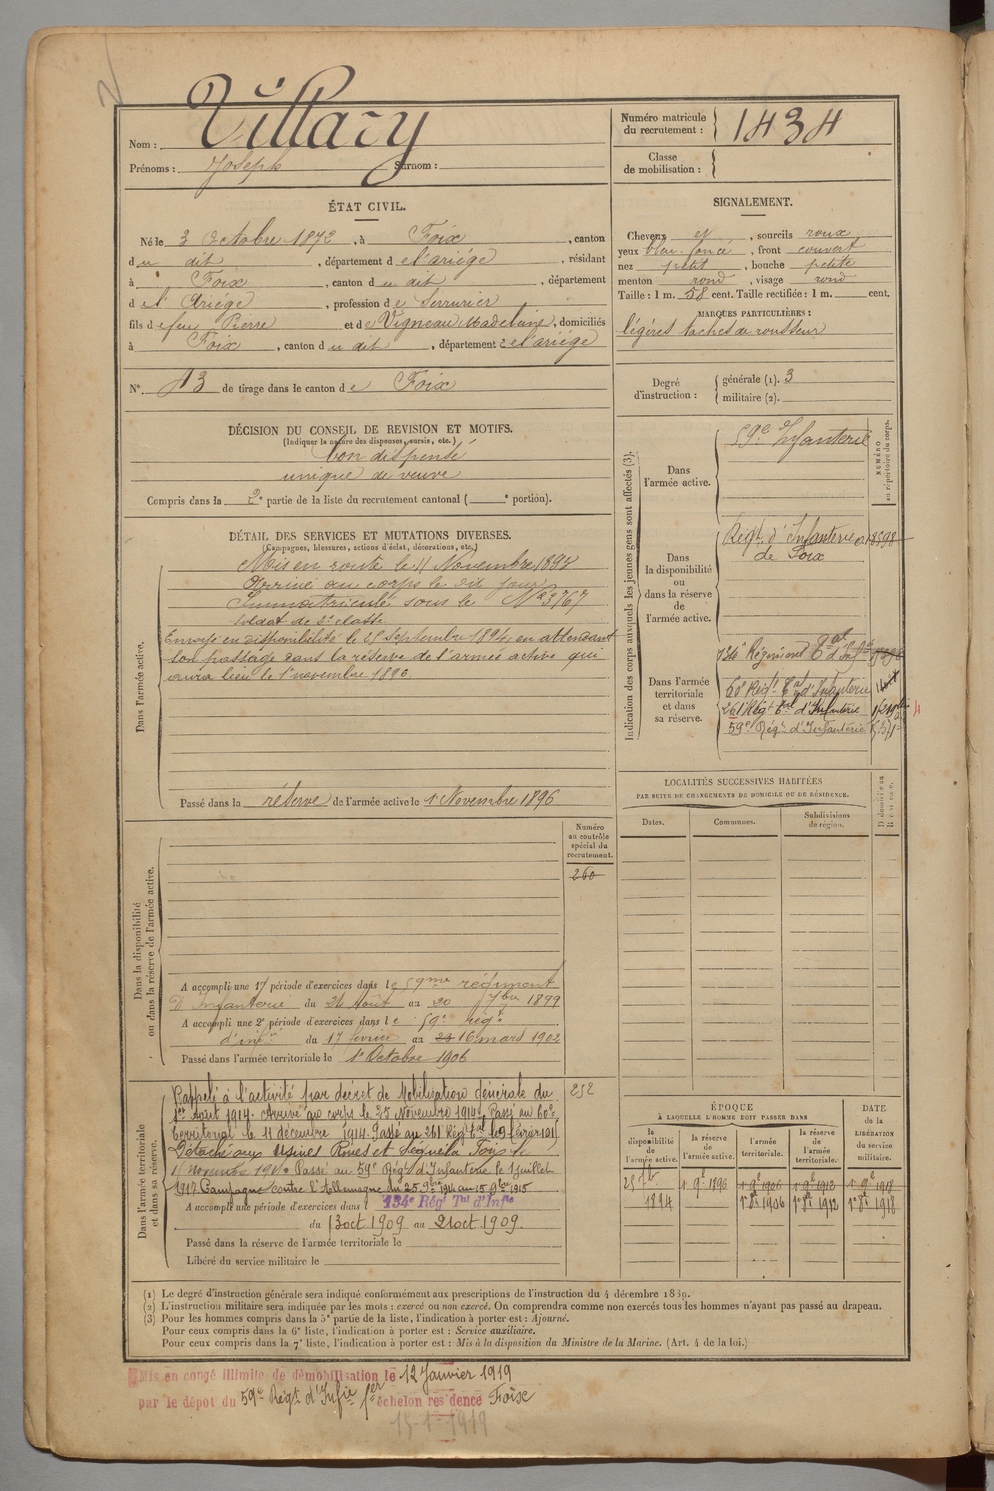 Nom : Villary
Prénoms : Joseph Surnom :
Numéro matricule du recrutement : 1434
Classe de mobilisation :
ÉTAT CIVIL.
Né le 3 Octobre 1872, à Foix, canton
du dit, département de l'ariége, résidant
à Foix, canton du dit, département
de l'Ariége, profession de Serrurier
fils de feu Pierre et de Vigneau Madeleine, domiciliés
à Foix, canton du dit, département de l'ariége
N° 13 de tirage dans le canton de Foix
SIGNALEMENT.
Cheveux et, sourcils roux
yeux bleu foncé, front couvert
nez petit, bouche petite
menton rond, visage rond
Taille : 1 m. 58 cent. Taille rectifiée : 1 m. cent.
MARQUES PARTICULIÈRES :
légères taches de rousseur
Degré d'instruction : générale (1). 3
militaire (2).
DÉCISION DU CONSEIL DE REVISION ET MOTIFS.
(Indiquer la nature des dispenses, sursis, etc.)
bon dispensé
unique de veuve
Compris dans la 2e partie de la liste du recrutement cantonal ( e portion).
DÉTAIL DES SERVICES ET MUTATIONS DIVERSES.
(Campagnes, blessures, actions d'éclat, décorations, etc.)
Dans l'armée active.
Mis en route le 11 Novembre 1893
Arrivé au corps le dit jour
Immatriculé sous le N° 3767
Soldat de 2e classe
Envoyé en disponibilité le 25 Septembre 1894 en attendant
son passage dans la réserve de l'armée active qui
aura lieu le 1er novembre 1896
Passé dans la réserve de l'armée active le 1er Novembre 1896
Indication des corps auxquels les jeunes gens sont affectés (3).
NUMÉRO au répertoire du corps.
Dans l'armée active.
59e Infanterie
Dans la disponibilité ou dans la réserve de l'armée active.
Régt. d'Infanterie
de Foix
Dans l'armée territoriale et dans sa réserve.
134e Régiment Tal d'Infie
60e Régt. Tal d'Infanterie
261e Régt Tal d'Infanterie
59e Régt d'Infanterie
LOCALITÉS SUCCESSIVES HABITÉES
PAR SUITE DE CHANGEMENTS DE DOMICILE OU DE RÉSIDENCE.
Dates. Communes. Subdivisions de région.
Dans la disponibilité ou dans la réserve de l'armée active.
Numéro au contrôle spécial du recrutement.
260
A accompli une 1re période d'exercices dans le 59me régiment
d'Infanterie du 24 Août au 20 7bre 1899
A accompli une 2e période d'exercices dans le 59e régt
d'infie du 17 fevrier au 23 16 mars 1902
Passé dans l'armée territoriale le 1er Octobre 1906
Dans l'armée territoriale et dans sa réserve.
252
Rappelé à l'activité par décret de Mobilisation Générale du
1er Août 1914. Arrivé au corps le 25 Novembre 1914. Passé au 60e
Territorial le 11 décembre 1914. Passé au 261 Régt Tal le 9 février 191
Détaché aux Usines Roues et Sequela Foix le
11 novembre Passé au 59e Régt d'Infanterie le 1 juillet
1917. Campagne contre l'Allemagne du 25 9bre 1914 au 15 9bre 1915
A accompli une période d'exercices dans l 134e Régt Tal d'Infie
du 13 oct. 1909 au 21 oct 1909.
Passé dans la réserve de l'armée territoriale le
Libéré du service militaire le
ÉPOQUE
À LAQUELLE L'HOMME DOIT PASSER DANS
la disponibilité de l'armée active. la réserve de l'armée active. l'armée territoriale. la réserve de l'armée territoriale. DATE de la LIBÉRATION du service militaire.
25 7bre 1er 9e 1896 1er 9e 1906 1er 9e 1912 1er 9e 1918
1894 1er 8e 1906 1er 8e 1912 1er 8e 1918
(1) Le degré d'instruction générale sera indiqué conformément aux prescriptions de l'instruction du 4 décembre 1889.
(2) L'instruction militaire sera indiquée par les mots : exercé ou non exercé. On comprendra comme non exercés tous les hommes n'ayant pas passé au drapeau.
(3) Pour les hommes compris dans la 5e partie de la liste, l'indication à porter est : Ajourné.
Pour ceux compris dans la 6e liste, l'indication à porter est : Service auxiliaire.
Pour ceux compris dans la 7e liste, l'indication à porter est : Mis à la disposition du Ministre de la Marine. (Art. 4 de la loi.)
Mis en congé illimité de démobilisation le 12 Janvier 1919
par le dépôt du 59e Régt d'Infie 1er échelon residence Foix
15-1-1919